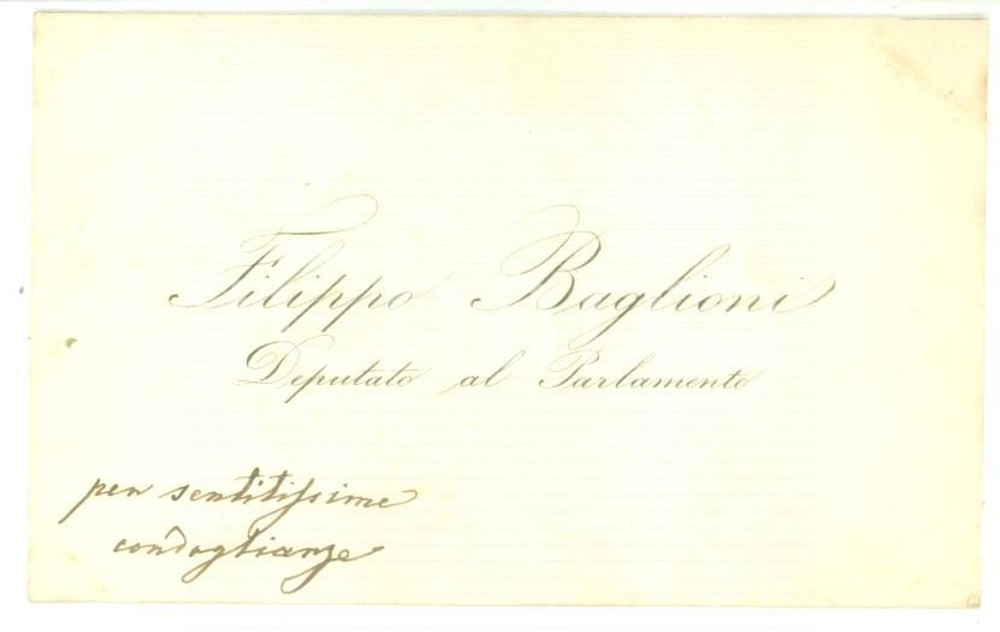 Filippo Baglioni
Deputato al Parlamento
per sentitissime
condoglianze